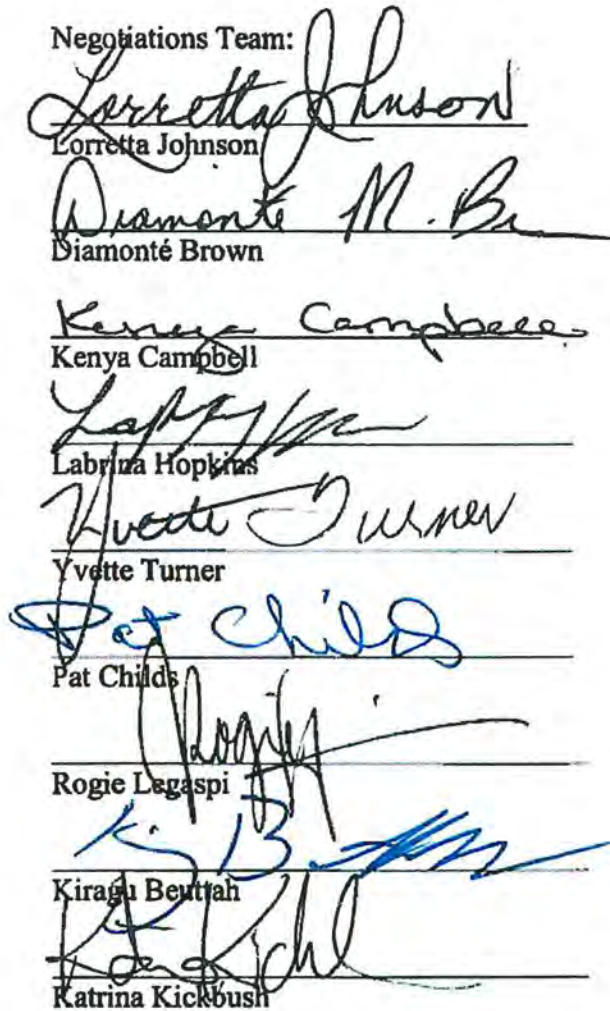 Negotiations Team:
Lorretta Johnson
Lorretta Johnson
Diamonté M. Br
Diamonté Brown
Kenya Campbell
Kenya Campbell
Labrina Hopkins
Yvette Turner
Yvette Turner
Pat Childs
Pat Childs
Rogie Legaspi
Kiragu Beuttah
Katrina Kickbush